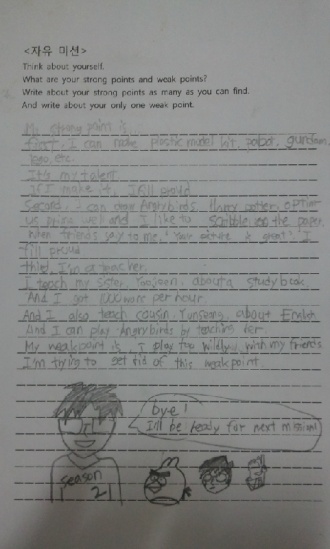 <자유 미션>
Think about yourself.
What are your strong points and weak points?
Write about your strong points as many as you can find.
And write about your only one weak point.
My strong point is
first, I can make plastic model kit, robot, gundam,
lego, etc.
It's my talent.
If I make it, I fill proud
Second, I can draw Angrybirds, Harry potter,
well and I like to scribble on the paper.
When friends say to me, "Your picture is great" I
fill proud
third, I'm a teacher.
I teach my sister, about a study book
And I got 1000 won per hour
And I also teach cousin, Yunseong, about English
And I can play Angrybirds by teaching her.
My weak point is, I play too wildly with my friends.
I'm trying to get rid of this weak point.
bye!
I'll be ready for next mission!
season
2